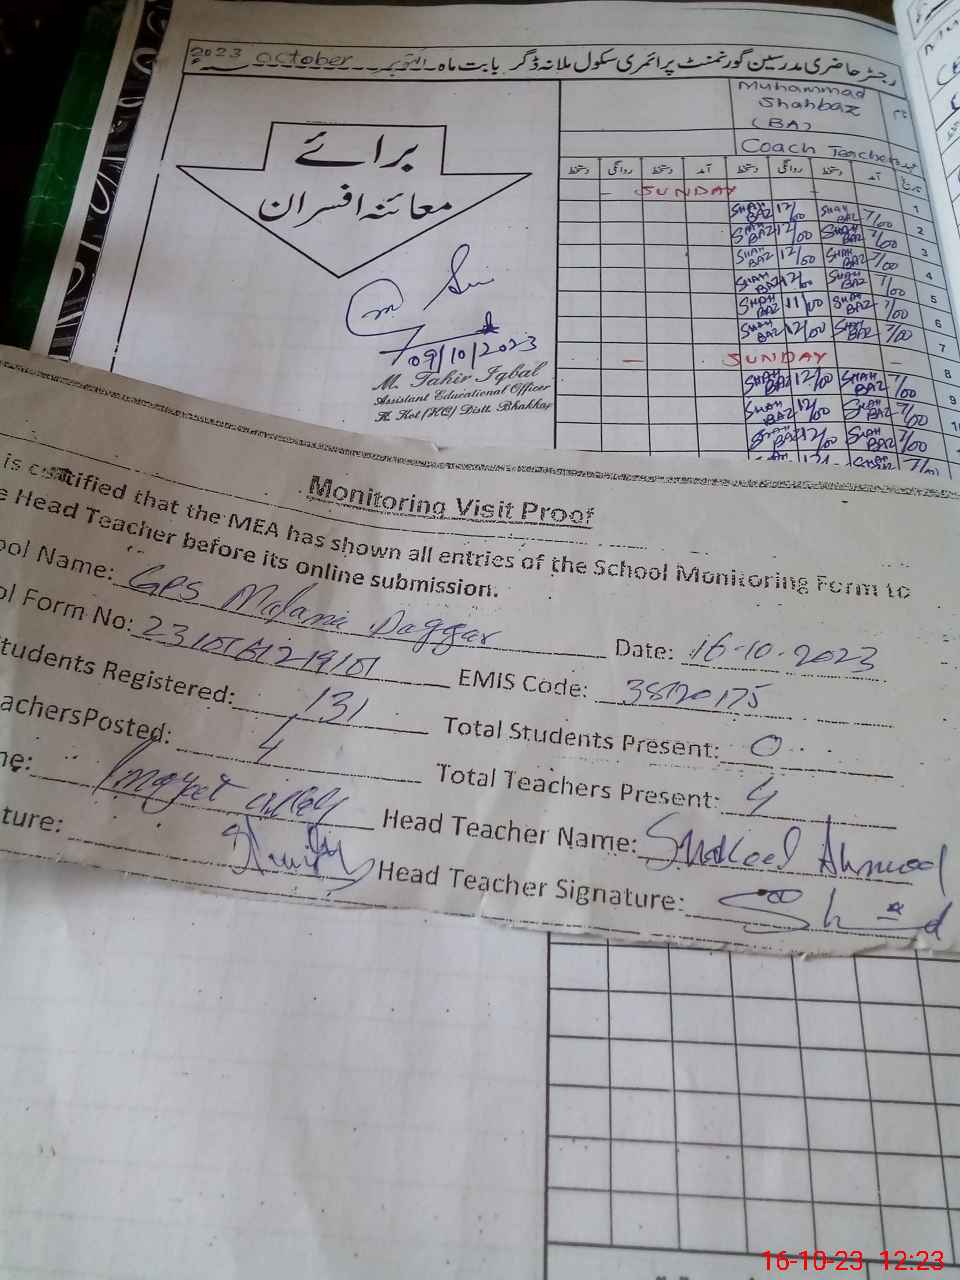 رجسٹر حاضری مدرسین گورنمنٹ پرائمری سکول ملانہ ڈگر بابت ماہ اکتوبر October 2023
برائے
معائنہ افسران
09/10/2023
M. Tahir Iqbal
Assistant Educational Officer
K. Kot (KC) Distt. Bhakkar
نام
Muhammad
Shahbaz
(BA)
عہدہ
Coach Teacher
تاریخ آمد دستخط روانگی دستخط آمد دستخط روانگی دستخط
1 SUNDAY
2 7/00 SHAHBAZ 12/00 SHAHBAZ
3 7/00 SHAHBAZ 12/00 SHAHBAZ
4 7/00 SHAHBAZ 12/00 SHAHBAZ
5 7/00 SHAHBAZ 12/00 SHAHBAZ
6 7/00 SHAHBAZ 11/00 SHAHBAZ
7 7/00 SHAHBAZ 12/00 SHAHBAZ
8 SUNDAY
9 7/00 SHAHBAZ 12/00 SHAHBAZ
10 7/00 SHAHBAZ 12/00 SHAHBAZ
7/00 SHAHBAZ 12/00 SHAHBAZ
Monitoring Visit Proof
is certified that the MEA has shown all entries of the School Monitoring Form to
Head Teacher before its online submission.
ool Name: GPS Malana Daggar Date: 16-10-2023
ol Form No: EMIS Code: 38120175
tudents Registered: 131 Total Students Present: 0
achersPosted: 4 Total Teachers Present: 4
me: Head Teacher Name: Shakeel Ahmad
ture: Head Teacher Signature:
16-10-23 12:23